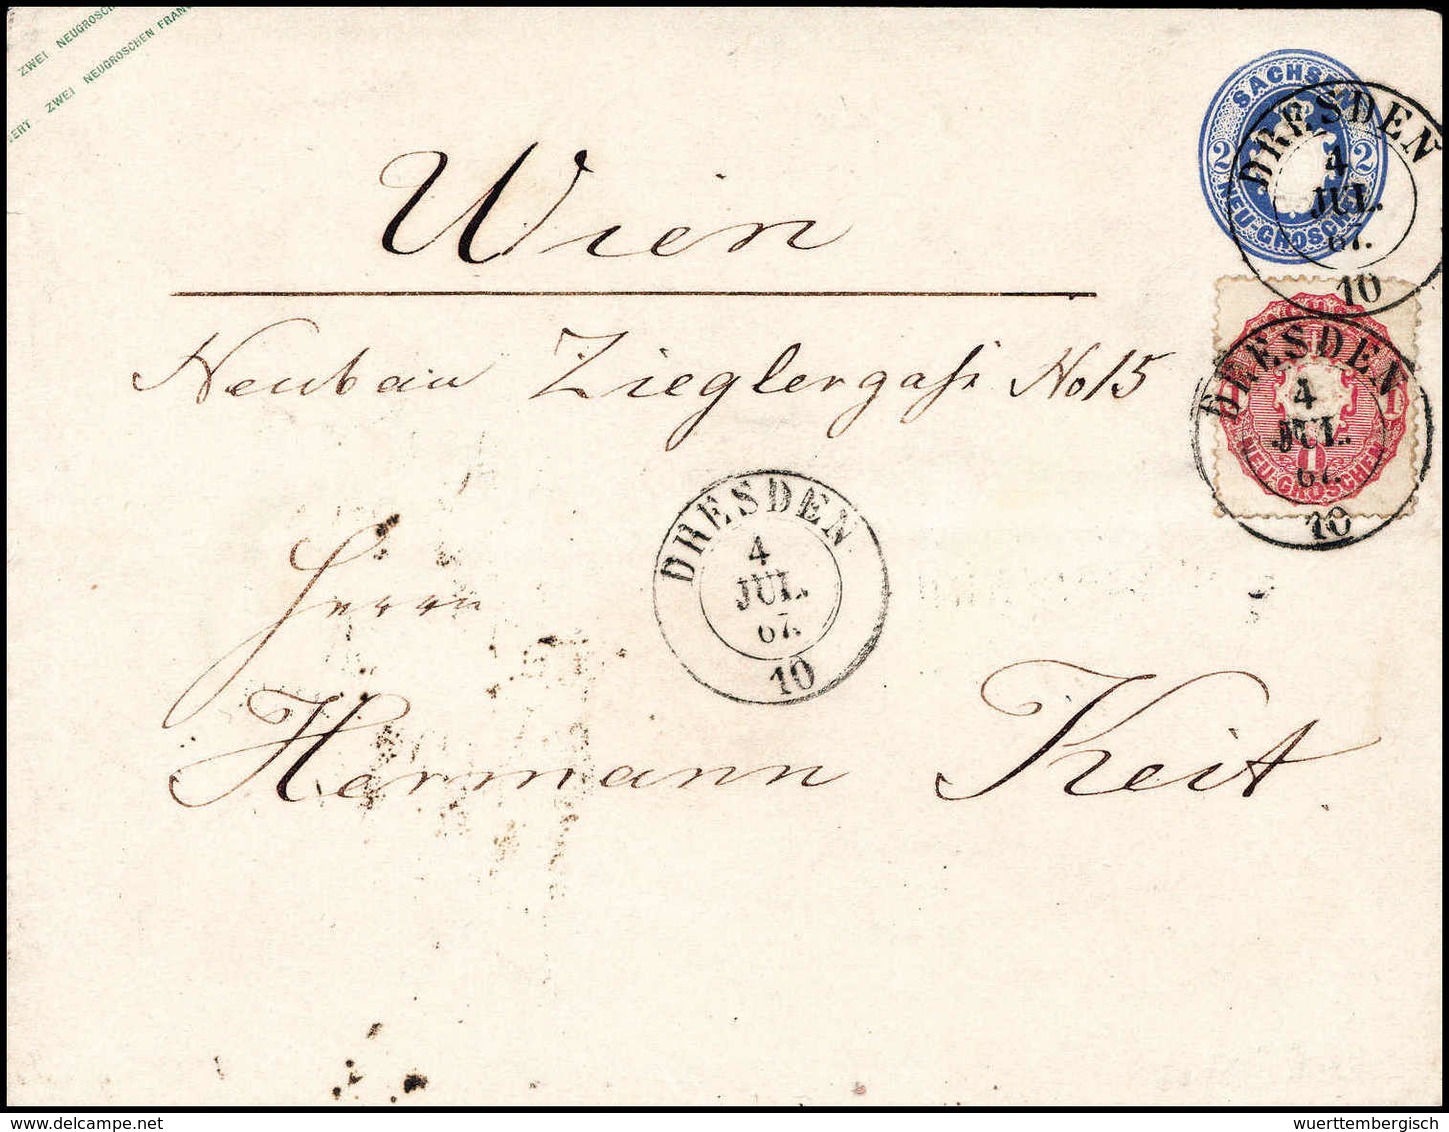 ZWEI NEUGROSCH
ZWEI NEUGROSCHEN FRAN
SACHSEN
2 2
NEU-GROSCHEN
DRESDEN
4
JUL.
67.
10
Wien
Neubau Zieglergasse No 15
1 1
1
NEU-GROSCHEN
DRESDEN
4
JUL.
67.
10
DRESDEN
4
JUL.
67.
10
Herrn
Hermann Keit.
delcampe.net
wuerttembergisch